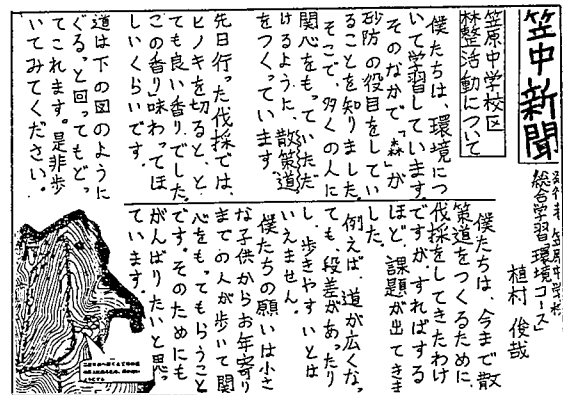 笠中新聞
発行者 笠原中学校
総合学習「環境コース」
植村 俊哉
笠原中学校区
林整活動について
僕たちは、環境につ
いて学習しています。
そのなかで「森」が
砂防の役目をしてい
ることを知りました。
そこで、多くの人に
関心をもっていただ
けるように、散策道
をつくっています。
先日行った伐採では、
ヒノキを切ると、と
ても良い香りでした。
この香り味わってほ
しいくらいです。
道は下の図のように
ぐるっと回ってもどっ
てこれます。是非歩
いてみてください。
僕たちは、今まで散
策道をつくるために、
伐採をしてきたわけ
ですが、すればする
ほど、課題が出てきま
した。
例えば、道が広くなっ
ても、段差があったり
し、歩きやすいとは
いえません。
僕たちの願いは小さ
な子供からお年寄り
までの人が歩いて関
心をもってもらうこと
です。そのためにも
がんばりたいと思っ
ています。